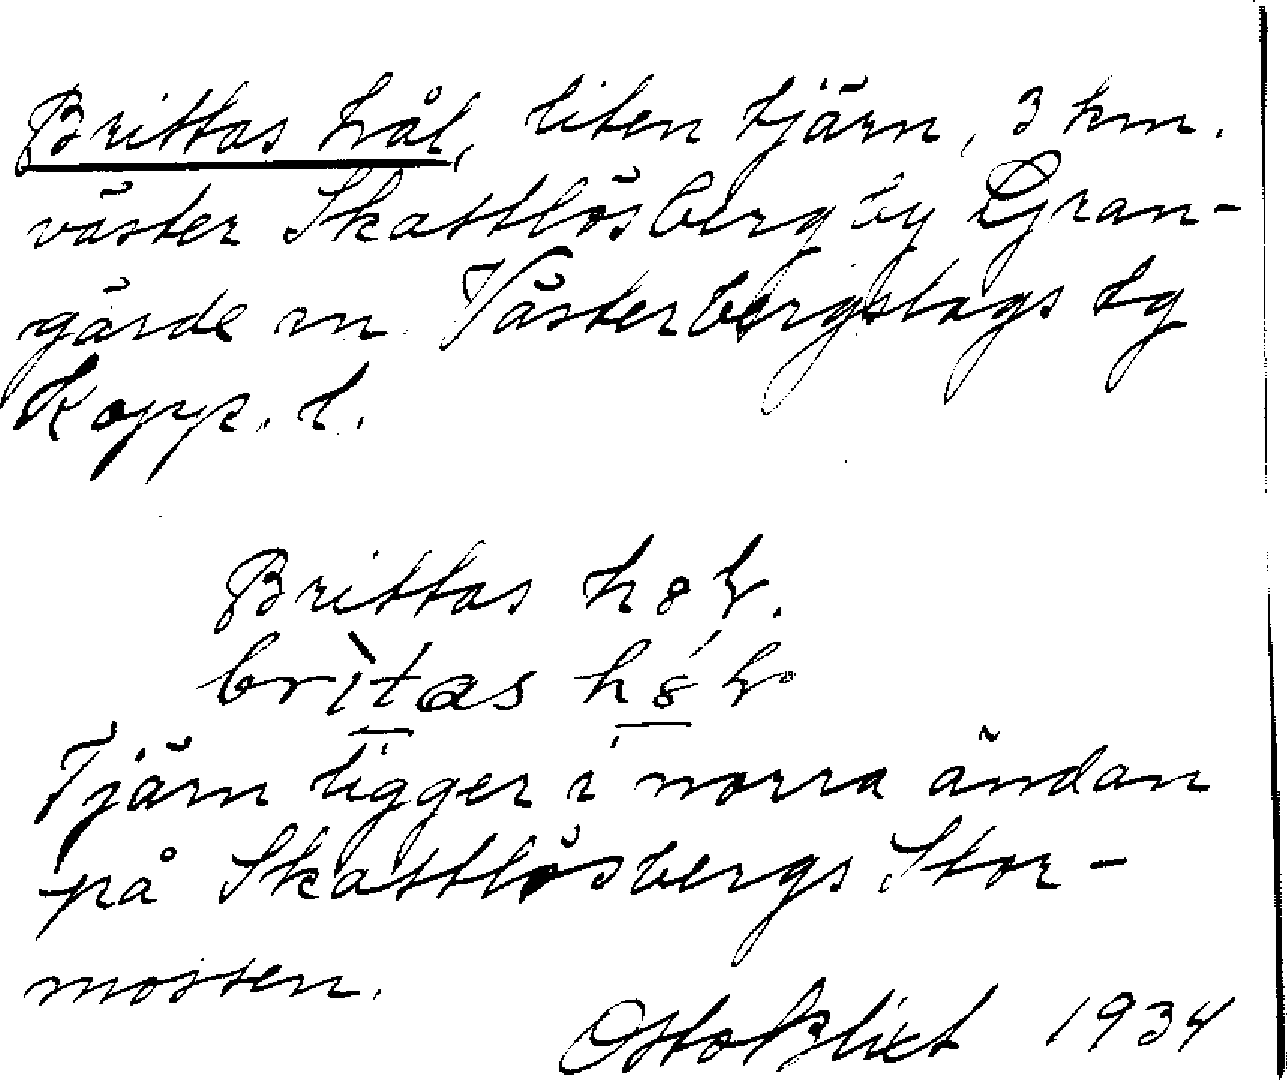 Brittas hål, liten tjärn, 3 km.
väster Skattlösberg by Gran-
gärde sn Västerbergslags tg
Kopp. l.
Brittas
britas
Tjärn ligger i norra ändan
på Skattlösbergs Stor-
mossen.
Otto Blixt 1934